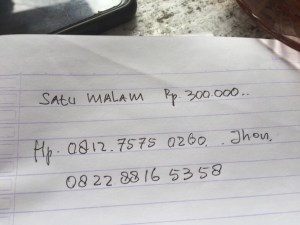 SATU MALAM Rp. 300.000..
Hp. 0812.7575 0260. Jhon,
0822 8816 5358